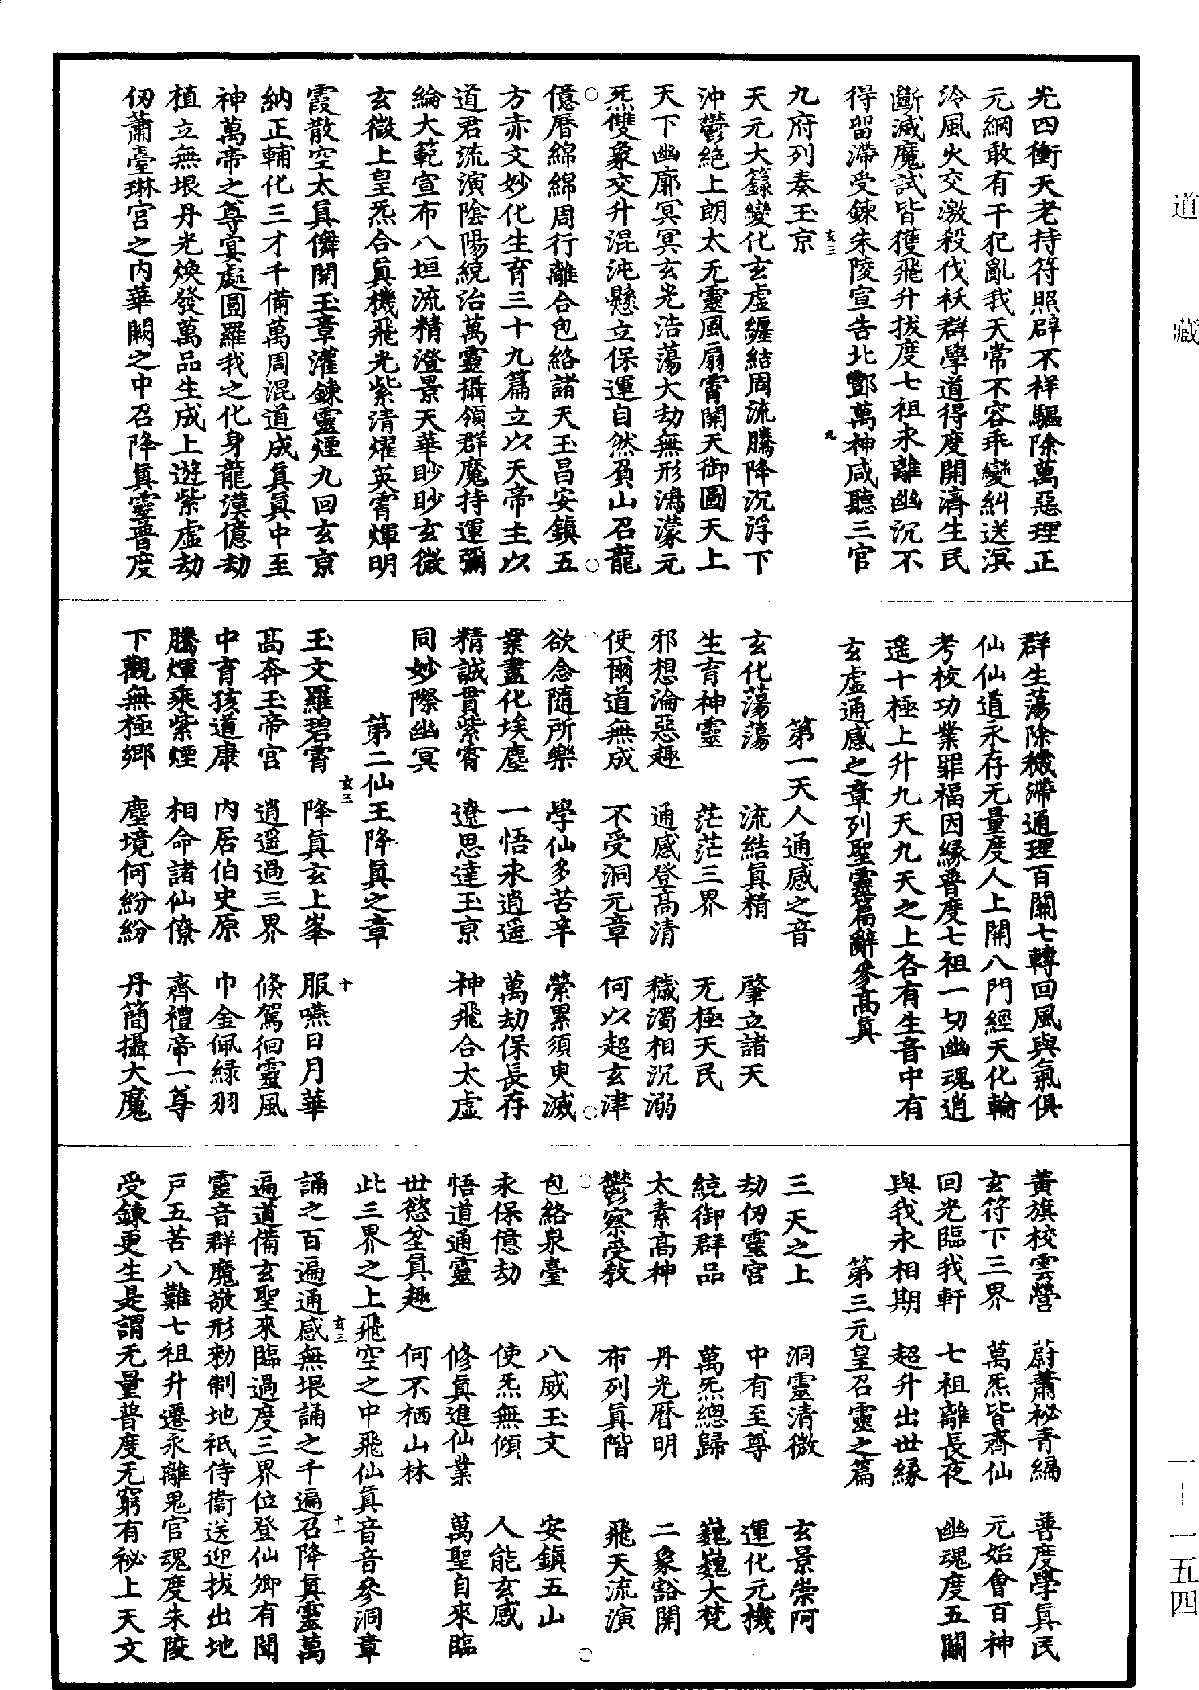 道藏
光四衝天老持符照辟不祥驅除萬惡理正
元綱敢有干犯亂我天常不容乖變糾送溟
泠風火交激殺伐袄群學道得度開濟生民
斷滅魔試皆獲飛升拔度七祖永離幽沉不
得留滯受鍊朱陵宣告北酆萬神咸聽三官
九府列奏玉京
玄三 九
天元大籙變化玄虛纏結周流騰降沉浮下
沖鬱絶上朗太无靈風扇霄開天御圖天上
天下幽廓冥冥玄光浩蕩大劫無形鴻濛元
炁雙象交升混沌懸立保運自然貟山召龍
億曆綿綿周行離合包絡諸天玉昌安鎮五
方赤文妙化生育三十九篇立以天帝主以
道君流演陰陽統治萬靈攝領群魔持運彌
綸大範宣布八垣流精澄景天華眇眇玄微
玄微上皇炁合眞機飛光紫清燿英霄煇明
霞散空太眞儛開玉章灌鍊靈煙九回玄京
納正輔化三才千備萬周混道成眞眞中至
神萬帝之尊宴處圓羅我之化身龍漢億劫
植立無垠丹光煥發萬品生成上遊紫虛劫
仞蕭臺琳宮之内華闕之中召降眞靈普度
群生蕩除穢滯通理百關七轉回風與氣俱
仙仙道永存无量度人上開八門經天化輪
考校功業罪福因緣普度七祖一切幽魂逍
遥十極上升九天九天之上各有生音中有
玄虛通感之章列聖靈篇辭參高眞
第一天人通感之音
玄化蕩蕩 流結眞精 肇立諸天
生育神靈 茫茫三界 无極天民
邪想淪惡趣 通感登高清 穢濁相沉溺
使爾道無成 不受洞元章 何以超玄津
欲念隨所樂 學仙多苦辛 縈累須臾滅
業盡化埃塵 一悟永逍遥 萬劫保長存
精誠貫紫霄 遼思達玉京 神飛合太虛
同妙際幽冥
第二仙王降眞之章
玄三 十
玉文羅碧霄 降眞玄上峯 服嚥日月華
高奔玉帝宮 逍遥過三界 倏駕徊靈風
中育孩道康 内居伯史原 巾金佩緑羽
騰煇乘紫煙 相命諸仙僚 齊禮帝一尊
下觀無極鄉 塵境何紛紛 丹簡攝大魔
黃旗校雲營 蔚蕭秘青編 普度學眞民
玄符下三界 萬炁皆齊仙 元始會百神
回光臨我軒 七祖離長夜 幽魂度五關
與我永相期 超升出世緣
第三元皇召靈之篇
三天之上 洞靈清微 玄景崇阿
劫仞靈官 中有至尊 運化元機
統御群品 萬炁總歸 巍巍大梵
太素高神 丹光曆明 二象豁開
鬱察受教 布列眞階 飛天流演
包絡泉臺 八威玉文 安鎮五山
永保億劫 使炁無傾 人能玄感
悟道通靈 修眞進仙業 萬聖自來臨
世慾坌眞趣 何不栖山林
此三界之上飛空之中飛仙眞音音參洞章
玄三 十一
誦之百遍通感無垠誦之千遍召降眞靈萬
遍道備玄聖來臨過度三界位登仙卿有聞
靈音群魔敬形勑制地祇侍衞送迎拔出地
戸五苦八難七祖升遷永離鬼官魂度朱陵
受鍊更生是謂无量普度无窮有祕上天文
一–一五四